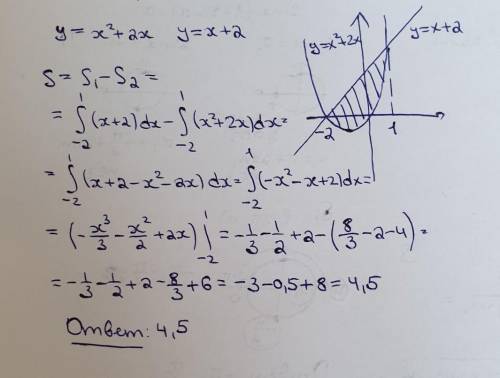 y = x² + 2x   y = x + 2
y=x²+2x   y=x+2
-2   1
S = S₁ - S₂ =
= ∫₋₂¹ (x+2)dx - ∫₋₂¹ (x²+2x)dx =
= ∫₋₂¹ (x+2-x²-2x)dx = ∫₋₂¹ (-x²-x+2)dx =
= (-x³/3 - x²/2 + 2x) |₋₂¹ = -1/3 - 1/2 + 2 - (8/3 - 2 - 4) =
= -1/3 - 1/2 + 2 - 8/3 + 6 = -3 - 0,5 + 8 = 4,5
Ответ: 4,5